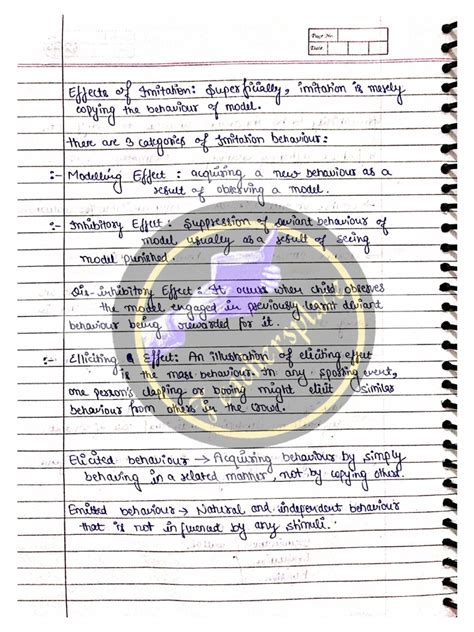 Page No.
Date
Effects of Imitation: Superficially, imitation is merely
copying the behaviour of model.
there are 3 categories of Imitation behaviour:
:- Modelling Effect : acquiring a new behaviour as a
result of observing a model.
:- Inhibitory Effect : Suppression of deviant behaviour of
model usually as a result of seeing
model punished.
Dis-inhibitory Effect : It occurs when child observes
the model engaged in previously learnt deviant
behaviour being rewarded for it.
:- Eliciting Effect: An illustration of eliciting effect
is the mass behaviour. In any sporting event,
one person's clapping or booing might elicit similar
behaviour from others in the crowd.
Elicited behaviour → Acquiring behaviour by simply
behaving in a related manner, not by copying others.
Emitted behaviour → Natural and independent behaviour
that is not influenced by any stimuli.